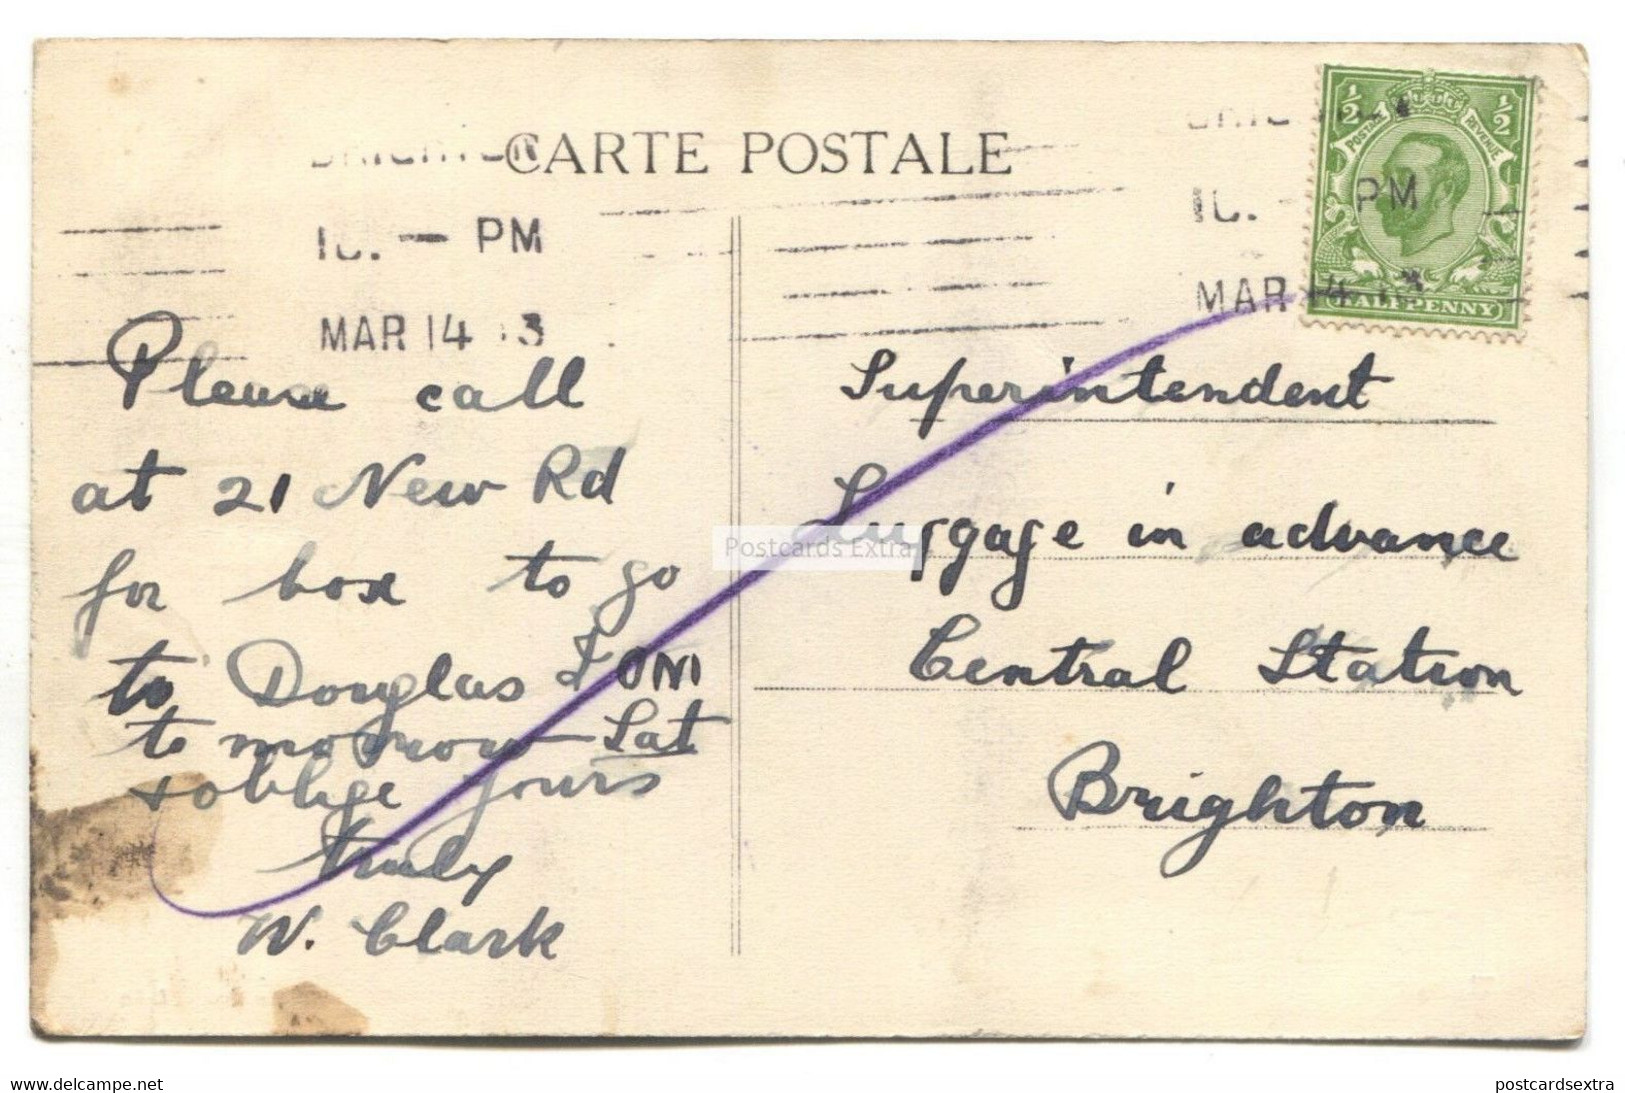 CARTE POSTALE
BRIGHTON
10. — PM
MAR 14 13
Please call
at 21 New Rd
for box to go
to Douglas I OM
to morrow Sat
& oblige yours
truly
W. Clark
BRIGHTON
10. — PM
MAR 14 13
½ ½
POSTAGE REVENUE
HALFPENNY
Superintendent
Luggage in advance
Central Station
Brighton
Postcards Extra
www.delcampe.net
postcardsextra